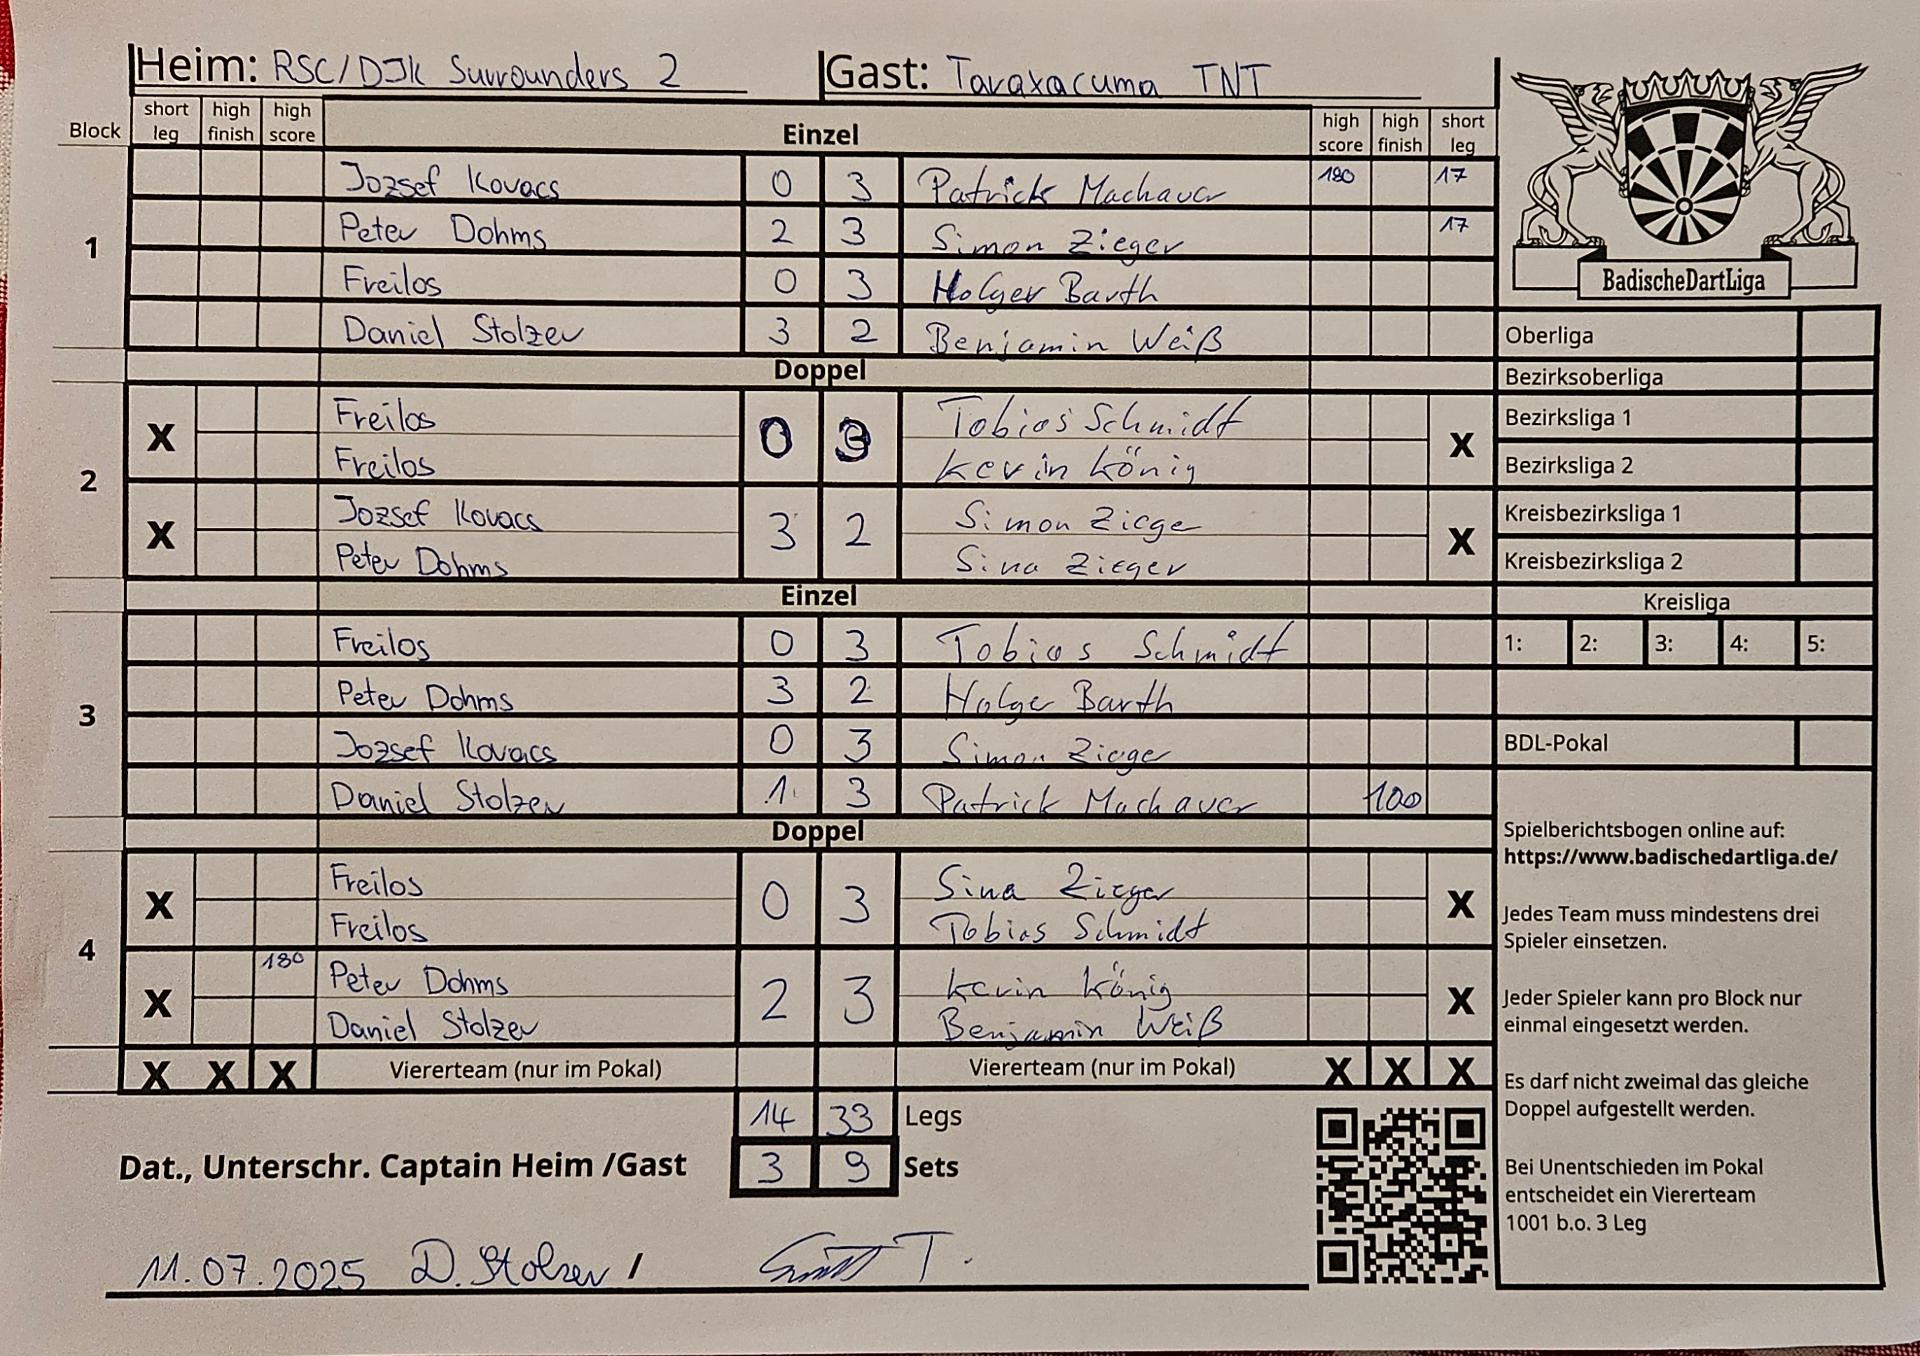 Heim: RSC/DJK Surrounders 2 Gast: Taraxacuma TNT
Block short leg high finish high score Einzel high score high finish short leg
1
Jozsef Kovacs 0 3 Patrick Machauer 180 17
Peter Dohms 2 3 Simon Zieger 17
Freilos 0 3 Holger Barth
Daniel Stolzer 3 2 Benjamin Weiß
Doppel
2
X Freilos 0 3 Tobias Schmidt X
Freilos Kevin König
X Jozsef Kovacs 3 2 Simon Ziege X
Peter Dohms Sina Zieger
Einzel
3
Freilos 0 3 Tobias Schmidt
Peter Dohms 3 2 Holge Barth
Jozsef Kovacs 0 3 Simon Zieger
Daniel Stolzer 1 3 Patrick Machauer 100
Doppel
4
X Freilos 0 3 Sina Zieger X
Freilos Tobias Schmidt
X 180 Peter Dohms 2 3 Kevin König X
Daniel Stolzer Benjamin Weiß
X X X Viererteam (nur im Pokal) Viererteam (nur im Pokal) X X X
14 33 Legs
Dat., Unterschr. Captain Heim /Gast 3 9 Sets
11.07.2025 D. Stolzer /
BadischeDartLiga
Oberliga
Bezirksoberliga
Bezirksliga 1
Bezirksliga 2
Kreisbezirksliga 1
Kreisbezirksliga 2
Kreisliga
1: 2: 3: 4: 5:
BDL-Pokal
Spielberichtsbogen online auf:
https://www.badischedartliga.de/
Jedes Team muss mindestens drei
Spieler einsetzen.
Jeder Spieler kann pro Block nur
einmal eingesetzt werden.
Es darf nicht zweimal das gleiche
Doppel aufgestellt werden.
Bei Unentschieden im Pokal
entscheidet ein Viererteam
1001 b.o. 3 Leg